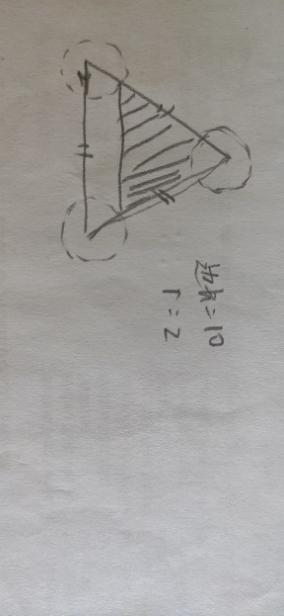 边长=10
r=2